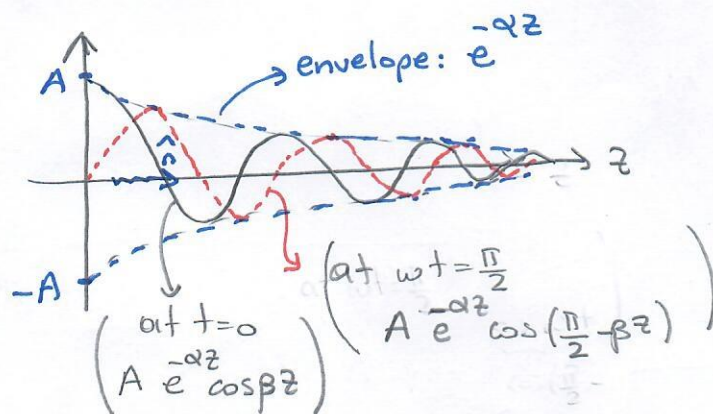 envelope: e^-αz
A
n̂
z
-A
at t=0
A e^-αz cosβz
at wt=π/2
A e^-αz cos(π/2-βz)